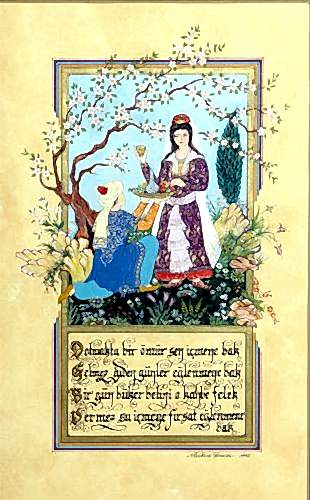 Dolmakta bir ömür sen içmene bak
Gelmez giden günler eğlenmene bak
Bir gün büker belini o kahbe felek
Vermez su içmene fırsat eğlenmene
bak